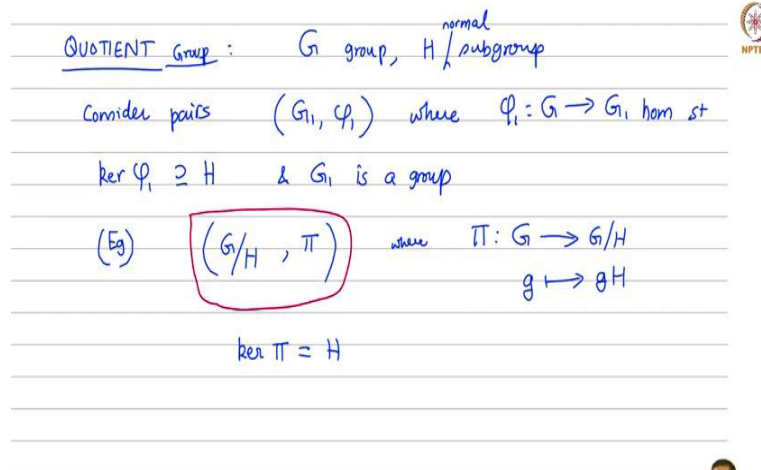 QUOTIENT Group : G group, H normal subgroup
Consider pairs (G₁, φ₁) where φ₁ : G → G₁ hom st
ker φ₁ ⊇ H & G₁ is a group
(Eg) (G/H , π) where π : G → G/H
g ↦ gH
ker π = H
NPTE